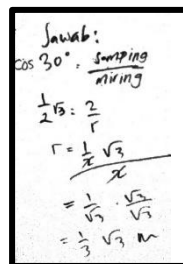 Jawab:
cos 30° = samping/miring
1/2 √3 = 2/r
r = 1/x √3 / x
= 1/√3 · √3/√3
= 1/3 √3 m